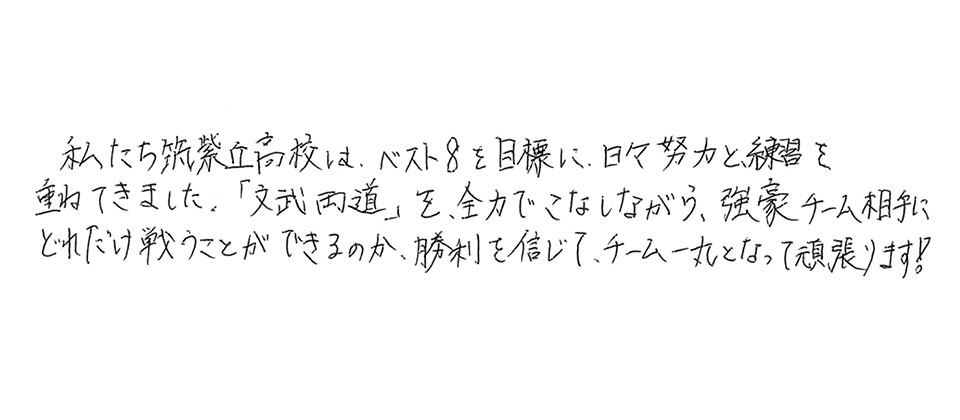 私たち筑紫丘高校は、ベスト8を目標に、日々努力と練習を
重ねてきました。「文武両道」を、全力でこなしながら、強豪チーム相手に
どれだけ戦うことができるのか、勝利を信じて、チーム一丸となって頑張ります!